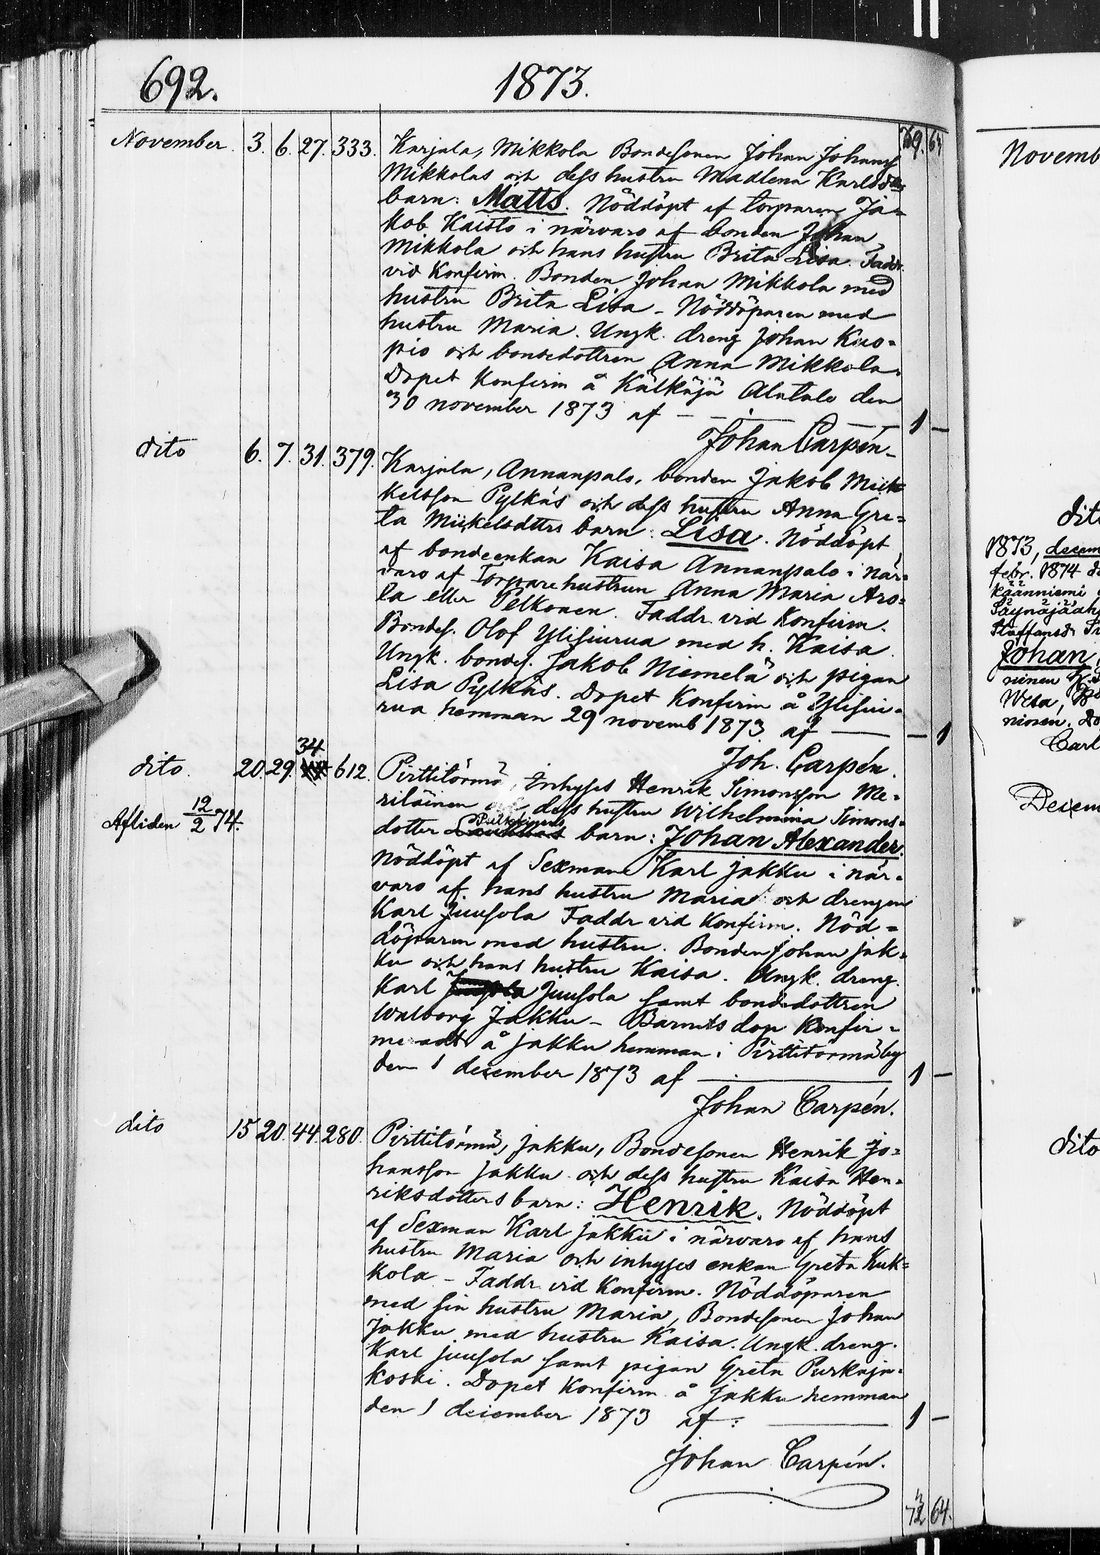 692. 1873.
69. 64
November. 3. 6. 27. 333. Karjala, Mikkola Bondesonen Johan Johanss
Mikkolas och dess hustru Madlena Karlsdtrs
barn: Matts. Nöddöpt af torparen Ja=
kob Kaisto i närvaro af bonden Johan
Mikkola och hans hustru Brita Lisa. Faddr.
vid Konfirm. Bonden Johan Mikkola med
hustru Brita Lisa – Nöddöparen med
hustru Maria. Ungk. dreng Johan Kuo=
pio och bondedottren Anna Mikkola.
Dopet Konfirm å Kälkäjä Alatalo den
30 november 1873 af — — 1 —
Johan Carpén.
dito 6. 7. 31. 379. Karjala, Annanpalo, bonden Jakob Mick=
kelsson Pylkäs och dess hustru Anna Gre=
ta Mickelsdtrs barn: Lisa. Nöddöpt
af bondeenkan Kaisa Annanpalo i när=
varo af Torparehustrun Anna Maria Aro=
la eller Pelkonen. Faddr. vid Konfirm.
Bondes. Olof Ylisiurua med h. Kaisa.
Ungk. bondes. Jakob Niemelä och pigan
Lisa Pylkäs. Dopet Konfirm å Ylisiu=
rua hemman 29 novemb 1873. af — — 1
Joh. Carpén.
34
dito. 20. 29. 612. Pirttitörmä, Inhyses Henrik Simonsson Me=
riläinen och dess hustru Wilhelmina Simons=
Afliden 12/2 74.
dotter barn: Johan Alexander.
Nöddöpt af Sexman Karl Jakku i när=
varo af hans hustru Maria och drengen
Karl Juusola Faddr vid Konfirm. Nöd=
döparen med hustru. Bonden Johan Jak=
ku och hans hustru Kaisa. Ungk. dreng.
Karl Juusola samt bondedottren
Walborg Jakku – Barnets dop Konfir=
meradt å Jakku hemman i Pirttitörmä by
den 1 december 1873 af — 1 —
Johan Carpén.
dito 15. 20. 44. 280. Pirttitörmä, Jakku, Bondesonen Henrik Jo=
hansson Jakku och dess hustru Kaisa Hen=
riksdotters barn: Henrik. Nöddöpt
af Sexman Karl Jakku i närvaro af hans
hustru Maria och inhyses enkan Greta Kuk=
kola – Faddr. vid Konfirm. Nöddöparen
med sin hustru Maria, Bondesonen Johan
Jakku med hustru Kaisa. Ungk. dreng.
Karl Juusola samt pigan Greta Purkaja=
koski. Dopet Konfirm å Jakku hemman
den 1 december 1873 af: — 1 —
Johan Carpén.
72 64.
Novemb
dito
1873, decem
febr. 1874 d
Käänniemi
Säynäjäah
Staffansdr
Johan,
ninen
Wesa,
Carl
Decem
dito